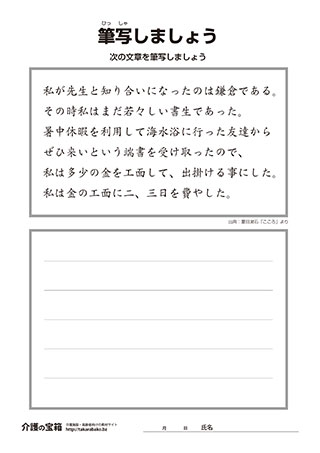 ひっ しゃ
筆写しましょう
次の文章を筆写しましょう
私が先生と知り合いになったのは鎌倉である。
その時私はまだ若々しい書生であった。
暑中休暇を利用して海水浴に行った友達から
ぜひ来いという端書を受け取ったので、
私は多少の金を工面して、出掛ける事にした。
私は金の工面に二、三日を費やした。
出典：夏目漱石「こころ」より
介護の宝箱
介護施設・高齢者向けの素材サイト
http://takarabako.bz
月 日 氏名